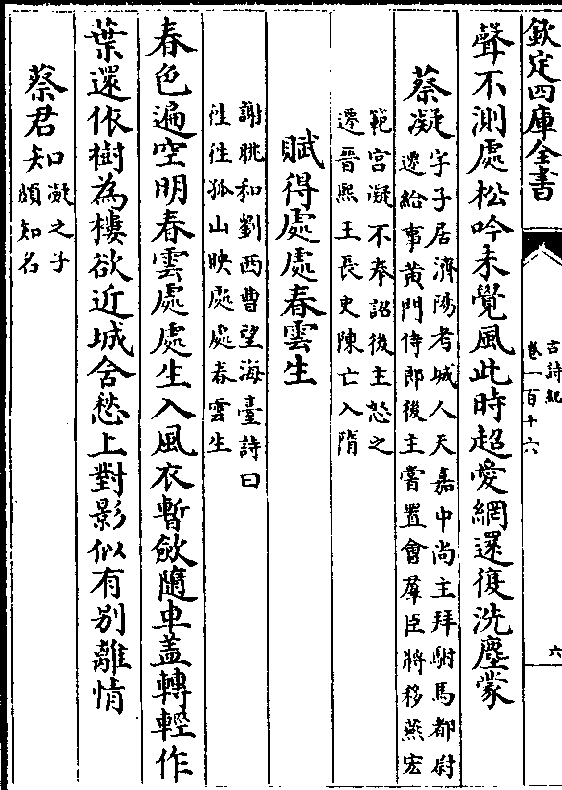 欽定四庫全書
古詩紀
卷一百十六
六
聲不測處松吟未覺風此時超愛網還復洗塵蒙
蔡凝
字子居濟陽考城人天嘉中尚主拜駙馬都尉
遷給事黃門侍郎後主嘗置會羣臣將移燕宏
範宫凝不奉詔後主怒之
遷晉熙王長史陳亡入隋
賦得處處春雲生
謝朓和劉西曹望海臺詩曰
往往孤山映處處春雲生
春色遍空明春雲處處生入風衣暫斂隨車蓋轉輕作
葉還依樹為樓欲近城含愁上對影似有别離情
蔡君知
凝之子
頗知名